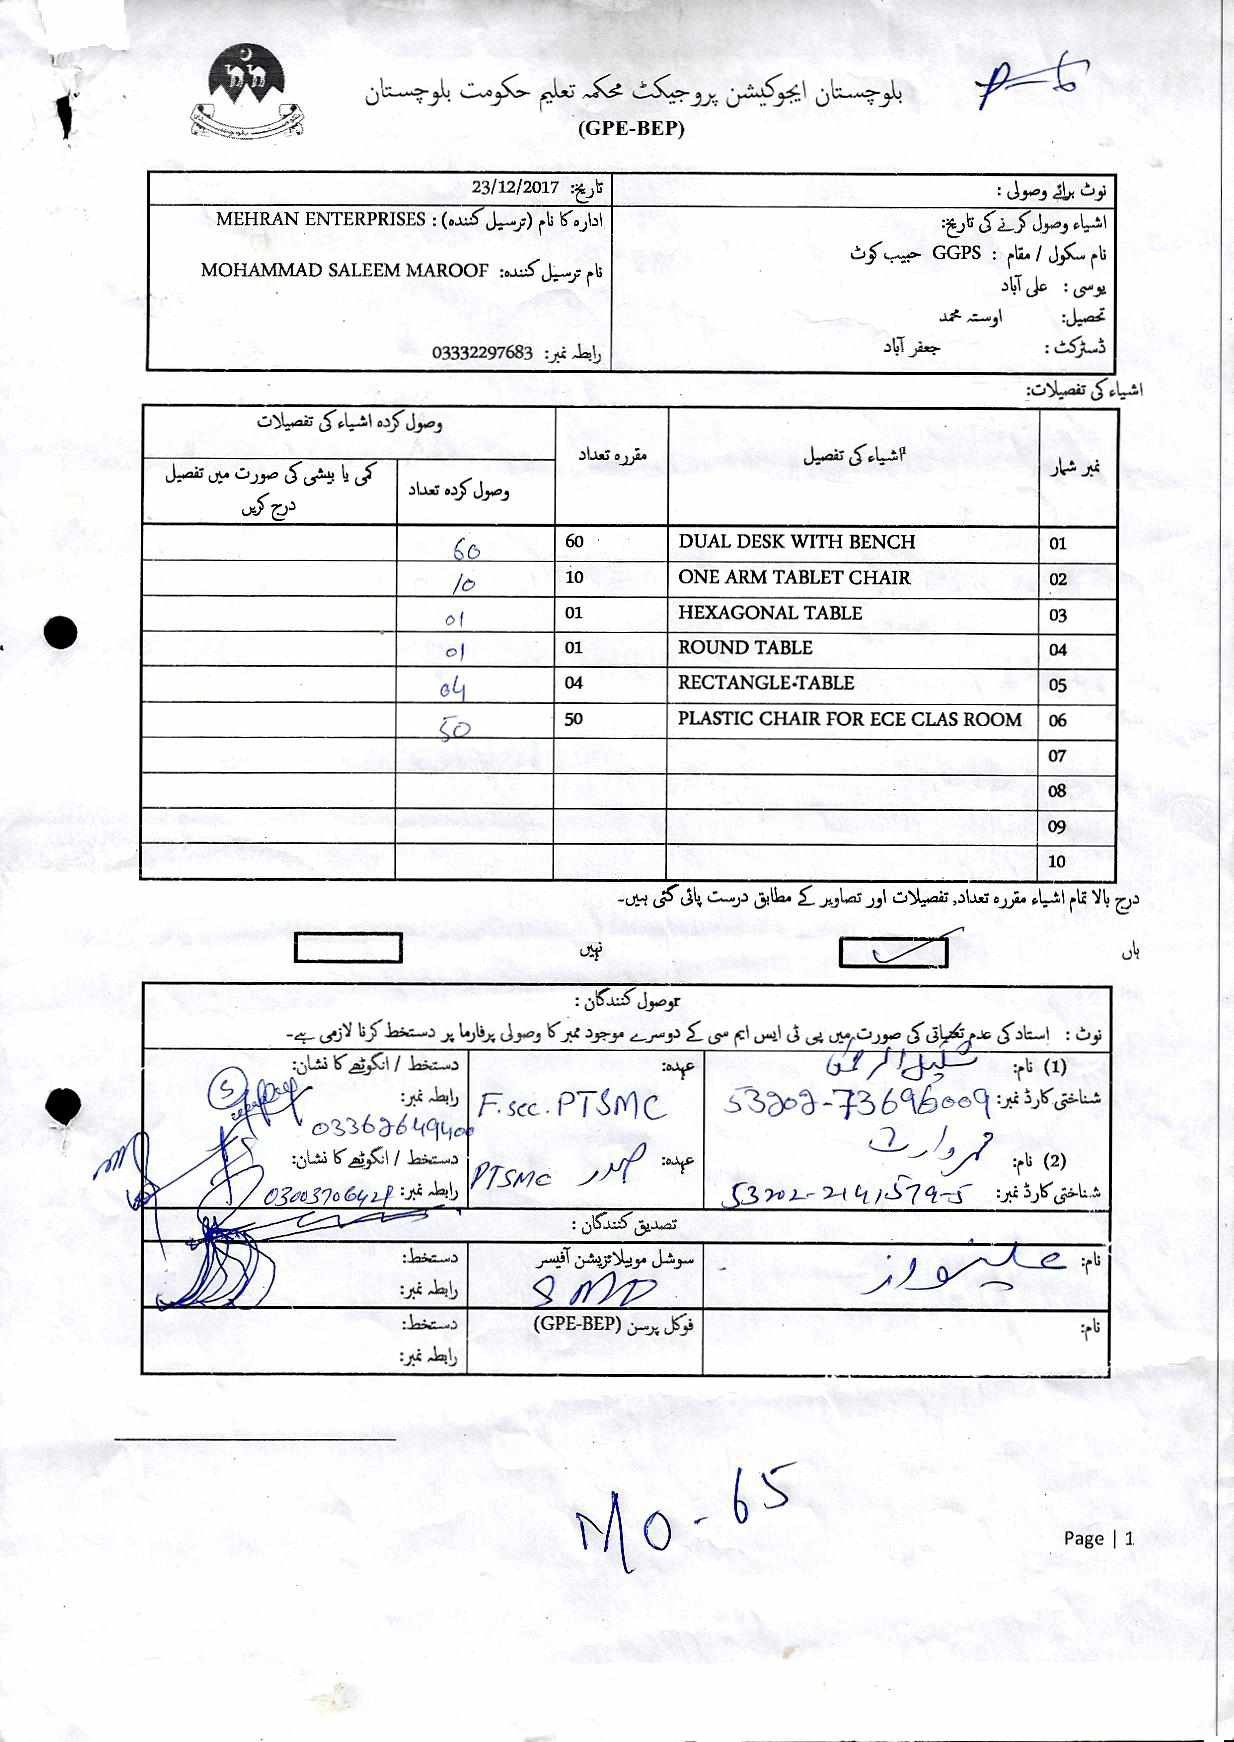 بلوچستان ایجوکیشن پروجیکٹ محکمہ تعلیم حکومت بلوچستان
(GPE-BEP)
P-6
نوٹ برائے وصولی :
تاریخ: 23/12/2017
اشیاء وصول کرنے کی تاریخ:
نام سکول / مقام : GGPS حبیب کوٹ
یوسی : علی آباد
تحصیل: اوستہ محمد
ڈسٹرکٹ : جعفر آباد
ادارہ کا نام (ترسیل کنندہ) : MEHRAN ENTERPRISES
نام ترسیل کنندہ: MOHAMMAD SALEEM MAROOF
رابطہ نمبر: 03332297683
اشیاء کی تفصیلات:
نمبر شمار اشیاء کی تفصیل مقررہ تعداد وصول کردہ اشیاء کی تفصیلات
وصول کردہ تعداد کمی یا بیشی کی صورت میں تفصیل درج کریں
01 DUAL DESK WITH BENCH 60 60
02 ONE ARM TABLET CHAIR 10 10
03 HEXAGONAL TABLE 01 01
04 ROUND TABLE 01 01
05 RECTANGLE TABLE 04 04
06 PLASTIC CHAIR FOR ECE CLAS ROOM 50 50
07
08
09
10
درج بالا تمام اشیاء مقررہ تعداد, تفصیلات اور تصاویر کے مطابق درست پائی گئی ہیں۔
ہاں نہیں
وصول کنندگان :
نوٹ : استاد کی عدم تعیناتی کی صورت میں پی ٹی ایس ایم سی کے دوسرے موجود ممبر کا وصولی پرفارما پر دستخط کرنا لازمی ہے۔
(1) نام: شکیل الرحمن عہدہ: دستخط / انگوٹھے کا نشان:
شناختی کارڈ نمبر: 53202-73696009 F.sec.PTSMC رابطہ نمبر: 03362649400
(2) نام: عہدہ: صدر PTSMC دستخط / انگوٹھے کا نشان:
شناختی کارڈ نمبر: 53202-2141579-5 رابطہ نمبر:
تصدیق کنندگان :
نام: علینواز سوشل موبیلائزیشن آفیسر دستخط:
SMO رابطہ نمبر:
نام: فوکل پرسن (GPE-BEP) دستخط:
رابطہ نمبر:
MO-65
Page | 1